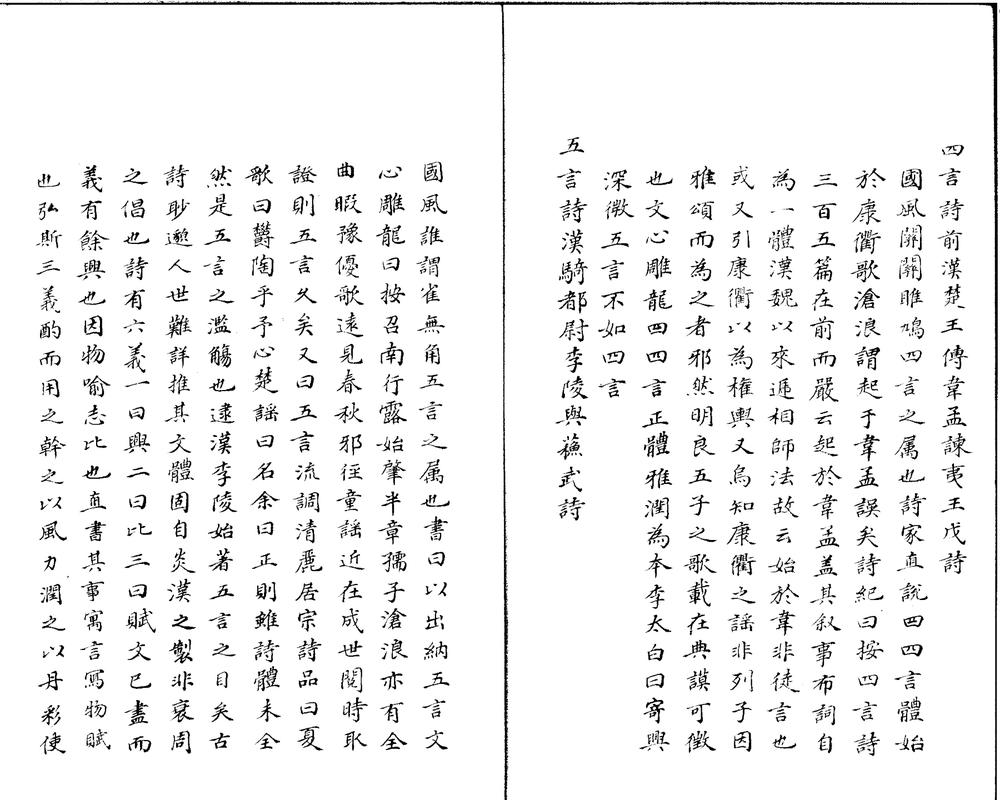 四言詩前漢楚王傅韋孟諫夷王戊詩
國風關關雎鳩四言之属也詩家直說四四言體始
於康衢歌滄浪謂起于韋孟誤矣詩紀曰按四言詩
三百五篇在前而嚴云起於韋孟盖其叙事布詞自
為一體漢魏以來遞相師法故云始於韋非徒言也
或又引康衢以為權輿又烏知康衢之謡非列子因
雅頌而為之者邪然明良五子之歌載在典謨可徵
也文心雕龍四四言正體雅潤為本李太白曰寄興
深微五言不如四言
五言詩漢騎都尉李陵與蘓武詩
國風誰謂雀無角五言之属也書曰以出納五言文
心雕龍曰按召南行露始肇半章孺子滄浪亦有全
曲暇豫優歌遠見春秋邪徑童謡近在成世閱時取
證則五言久矣又曰五言流調清麗居宗詩品曰夏
歌曰欝陶乎予心楚謡曰名余曰正則雖詩體未全
然是五言之濫觴也逮漢李陵始著五言之目矣古
詩眇邈人世難詳推其文體固自炎漢之製非衰周
之倡也詩有六義一曰興二曰比三曰賦文已盡而
義有餘興也因物喻志比也直書其事寓言寫物賦
也弘斯三義酌而用之幹之以風力潤之以丹彩使